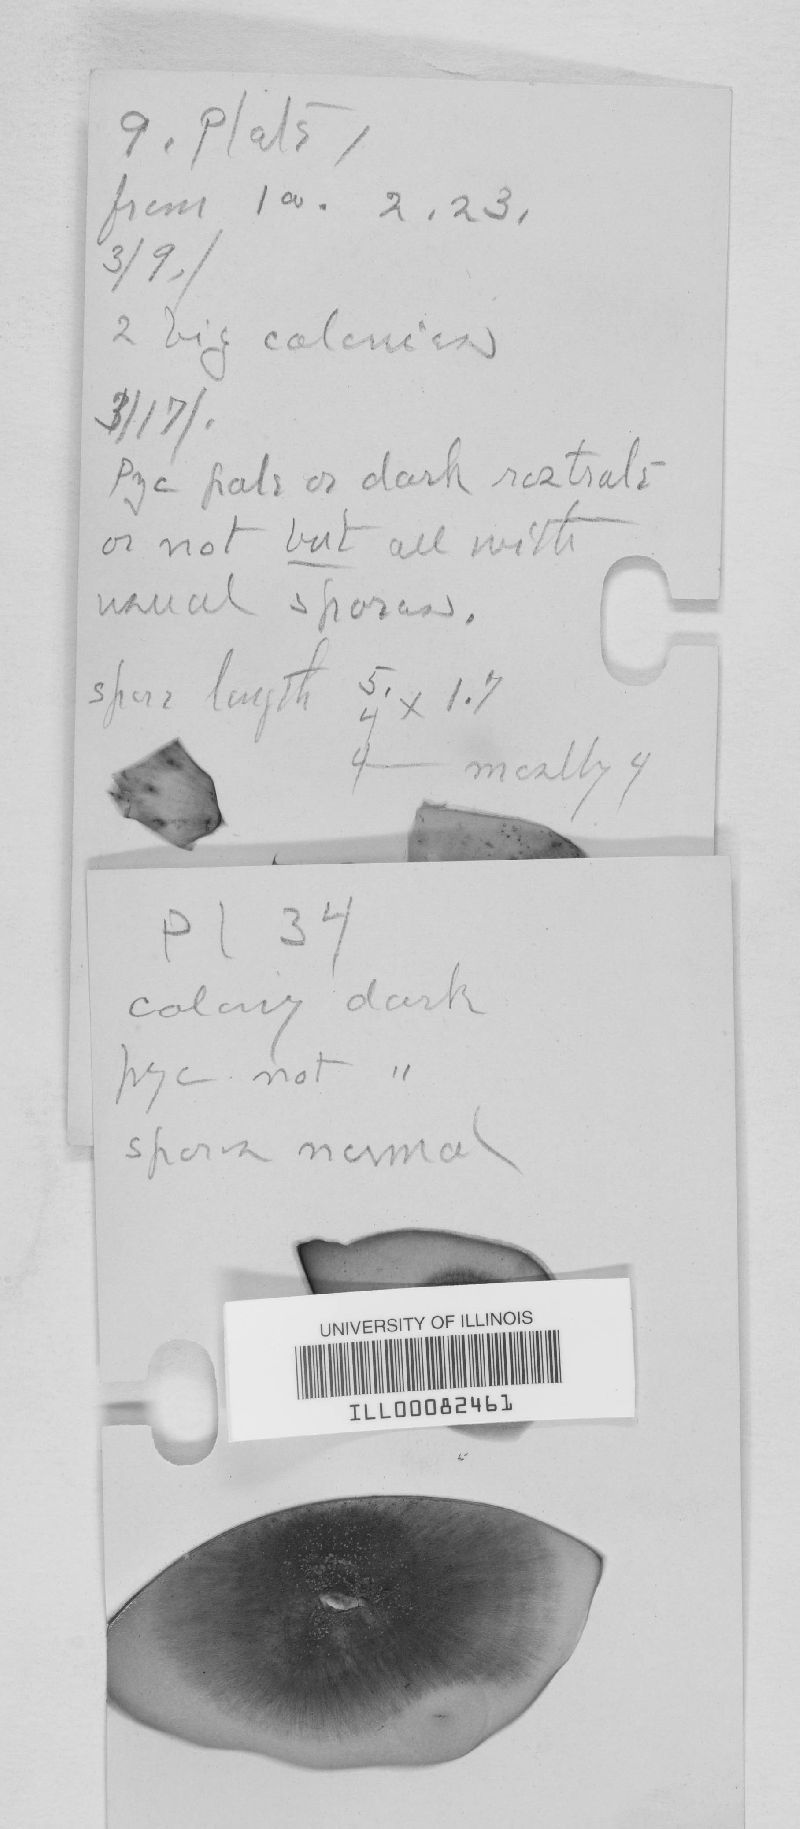 9. Plate,
from 1a. 2.23.
3/9./
2 big colonies
3/17/.
Pyc pale or dark rostrate
or not but all with
usual spores.
spore length 5. x 1.7
4
4 — mostly 4
Pl 34
colony dark
pyc not "
spores normal
UNIVERSITY OF ILLINOIS
ILL00082461